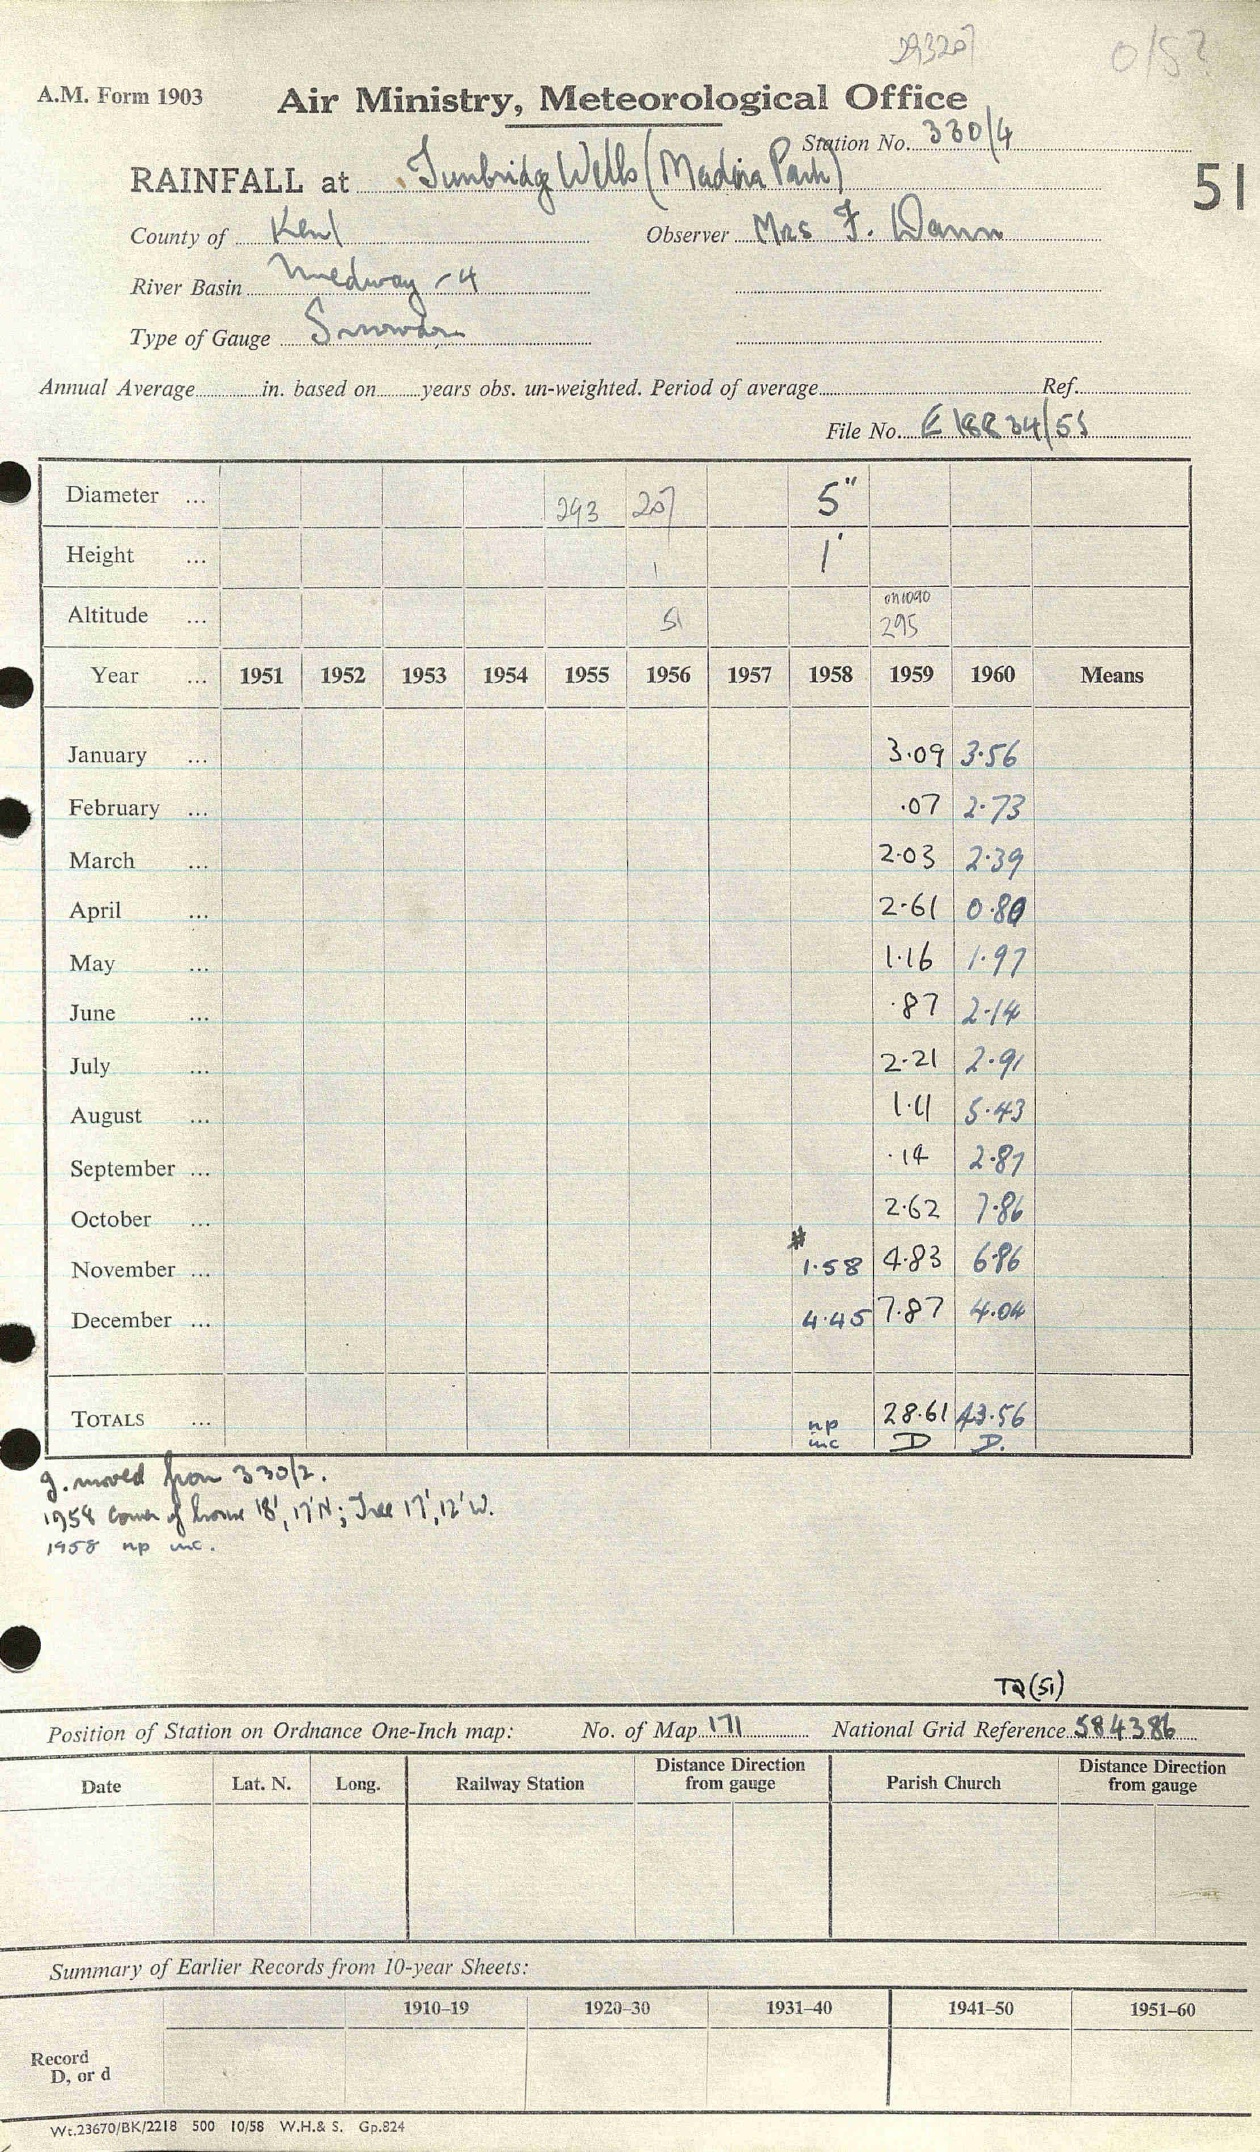 29320/
0/5?
A.M. Form 1903
Air Ministry, Meteorological Office
Station No. 330/4
RAINFALL at Tunbridge Wells (Madeira Park)
51
County of Kent
Observer Mrs F. Dann
River Basin Medway - 4
Type of Gauge Snowdon
Annual Average in. based on years obs. un-weighted. Period of average Ref.
File No.
Diameter ... 293 207 5"
Height ... 1 1'
Altitude ... 51 295
Year ... 1951 1952 1953 1954 1955 1956 1957 1958 1959 1960 Means
January ... 3.09 3.56
February ... .07 2.73
March ... 2.03 2.39
April ... 2.61 0.80
May ... 1.16 1.97
June ... .87 2.14
July ... 2.21 2.91
August ... 1.11 5.43
September ... .14 2.87
October ... 2.62 7.86
#
November ... 1.58 4.83 6.86
December ... 4.45 7.87 4.04
TOTALS ... np inc 28.61 D 43.56 D.
g. moved from 330/2.
1958 Corner of house 18', 17' N; Tree 17', 12' W.
1958 np inc.
TQ(51)
Position of Station on Ordnance One-Inch map: No. of Map 171 National Grid Reference 584386
Date Lat. N. Long. Railway Station Distance Direction from gauge Parish Church Distance Direction from gauge
Summary of Earlier Records from 10-year Sheets:
1910–19 1920–30 1931–40 1941–50 1951–60
Record
D, or d
Wt.23670/BK/2218 500 10/58 W.H.& S. Gp.824